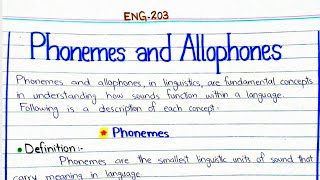 ENG-203
Phonemes and Allophones
Phonemes and allophones, in linguistics, are fundamental concepts
in understanding how sounds function within a language.
Following is a description of each concept:
Phonemes
Definition:-
Phonemes are the smallest linguistic units of sound that
carry meaning in language